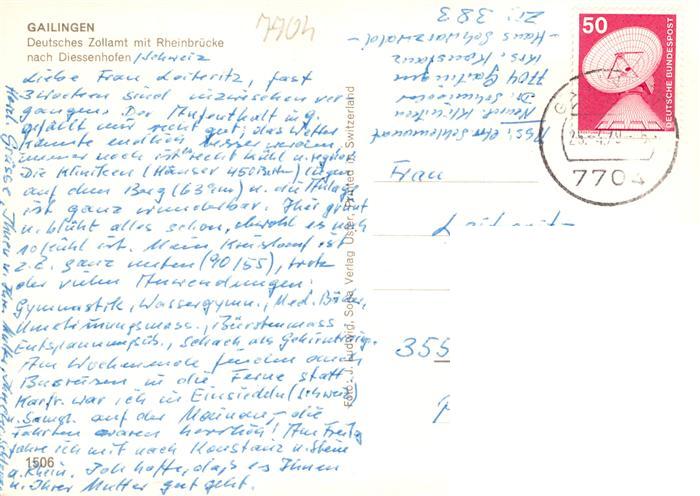 GAILINGEN
Deutsches Zollamt mit Rheinbrücke
nach Diessenhofen/Schweiz
7704
Liebe Frau Leiteritz, fast
3 Wochen sind inzwischen ver-
gangen. Der Aufenthalt in G.
gefällt mir recht gut; das Wetter
könnte endlich besser werden,
immer noch ist recht kühl u. regner.
Die Kliniken (Häuser 450 Betten) liegen
auf dem Berg u. die Anlage
ist ganz wunderbar. Hier grünt
u. blüht alles schon, obwohl es noch
so kühl ist. Mein Kreislauf ist
z.Z. ganz unten (90/55), trotz
der vielen Anwendungen:
Gymnastik, Wassergymn., Med. Bäder,
Bürstenmass.
Entspannungsüb.,
Am Wochenende finden auch
Busreisen in die Ferne statt
war ich in Einsiedeln (Schweiz)
auf der Mainau - die
Fahrten waren herrlich! Am Freitag
fahre ich mit nach Konstanz u. Stein
a. Rhein. Ich hoffe, daß es Ihnen
u. Ihrer Mutter gut geht.
Herzl. Grüsse, Ihnen u. Ihrer Mutter
1506
Foto: J. Ludwig, Verlag Uster, Printed in Switzerland
Zi. 383
- Haus Schwarzwald -
Krs. Konstanz
7704 Gailingen
Dr. Schmieder
Neurol. Kliniken
50
DEUTSCHE BUNDESPOST
7704
Frau
355